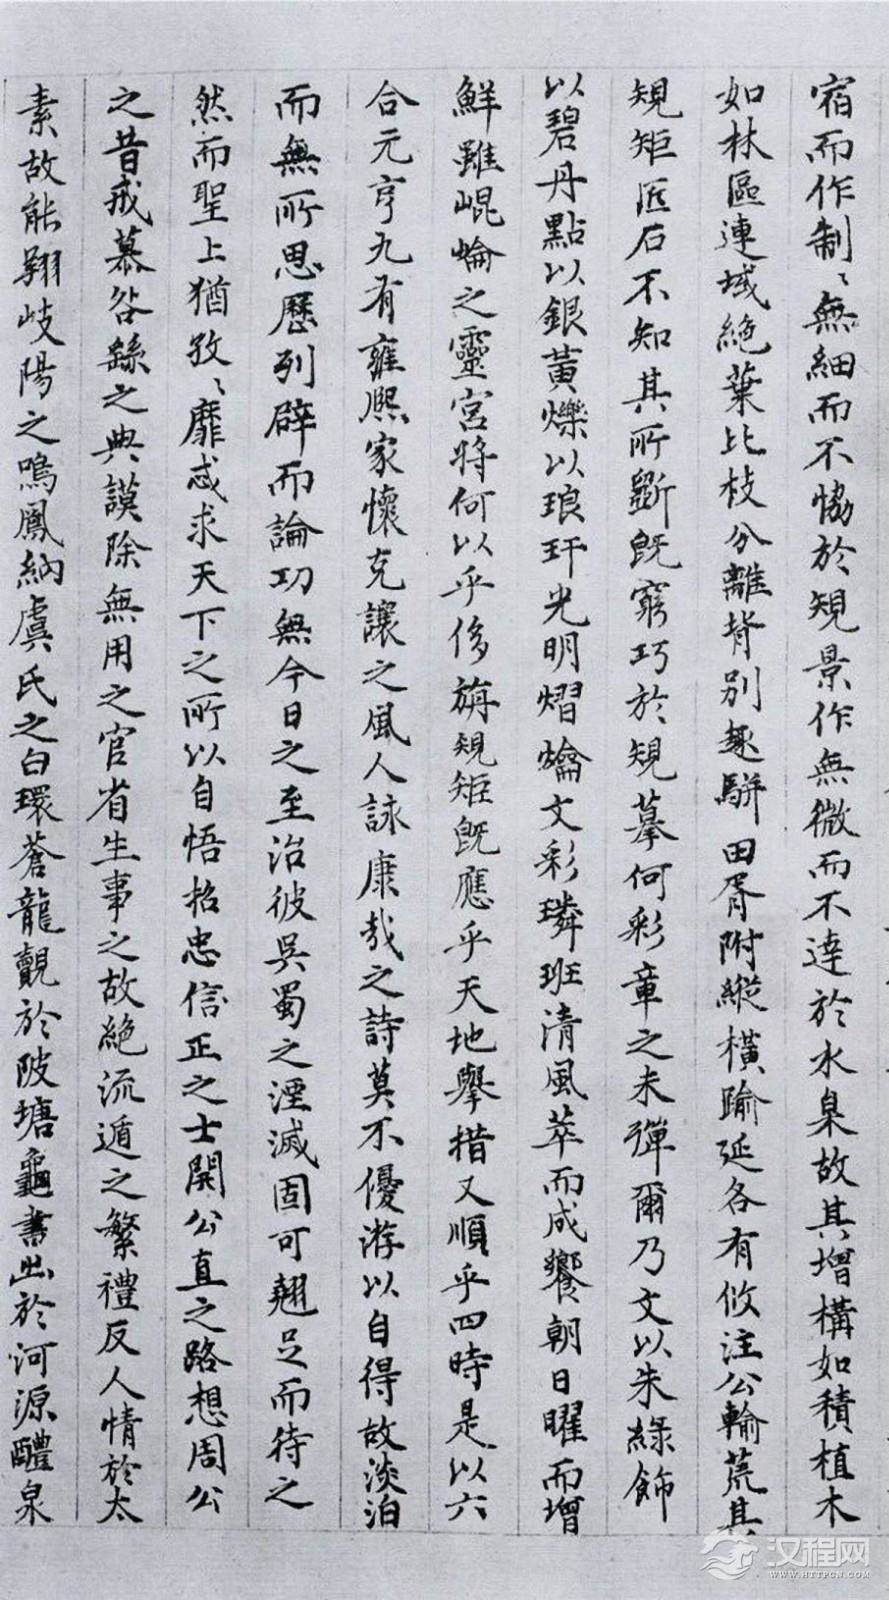 宿而作制〻無細而不恊於規景作無微而不達於水臬故其增構如積植木
如林區連域絕葉比枝分離背別趣駢田胥附縱橫踰延各有攸注公輸荒其
規矩匠石不知其所斲既窮巧於規摹何彩章之未殫爾乃文以朱綠飾
以碧丹點以銀黃爍以琅玕光明熠爚文彩璘班清風萃而成響朝日曜而增
鮮雖崐崘之靈宮將何以乎侈旃規矩既應乎天地舉措又順乎四時是以六
合元亨九有雍熙家懷克讓之風人詠康哉之詩莫不優游以自得故淡泊
而無所思歷列辟而論功無今日之至治彼吳蜀之湮滅固可翹足而待之
然而聖上猶孜〻靡忒求天下之所以自悟招忠信正之士開公直之路想周公
之昔戒慕咎繇之典謨除無用之官省生事之故絕流遁之繁禮反人情於太
素故能翔岐陽之鳴鳳納虞氏之白環蒼龍覿於陂塘龜書出於河源醴泉
汉程网
WWW.HTTPCN.COM